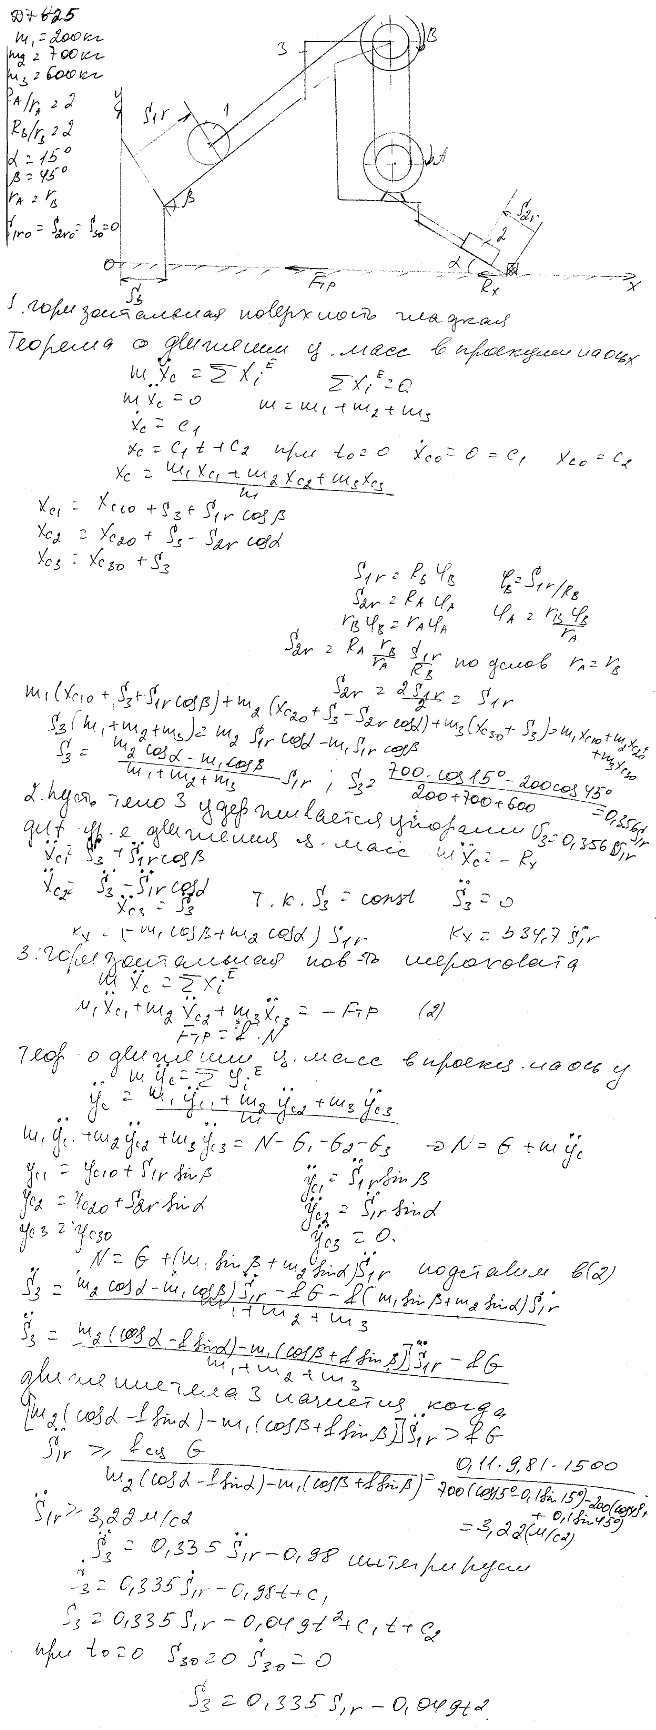 m₁ = 200 кг
m₂ = 700 кг
m₃ = 600 кг
R_A/r_A = 2
R_B/r_B = 2
α = 15°
β = 45°
r_A = r_B
Ṡ₁r₀ = Ṡ₂r₀ = Ṡ₃₀ = 0
y
3
B
S₁r
1
A
β
S₂r
2
α
0
S₃
Fтр
Rx
x
1. горизонтальная поверхность гладкая
Теорема о движении ц. масс в проекции на ось x
m ẍc = ΣXiᴱ ΣXiᴱ = 0
m ẍc = 0 m = m₁ + m₂ + m₃
ẋc = c₁
xc = c₁t + c₂ при t₀ = 0 ẋc₀ = 0 = c₁ xc₀ = c₂
xc = (m₁xc₁ + m₂xc₂ + m₃xc₃)/m
xc₁ = xc₁₀ + S₃ + S₁r cosβ
xc₂ = xc₂₀ + S₃ - S₂r cosα
xc₃ = xc₃₀ + S₃
S₁r = R_B φ_B φ_B = S₁r/R_B
S₂r = R_A φ_A φ_A = r_B φ_B/r_A
r_B φ_B = r_A φ_A
S₂r = R_A r_B/r_A S₁r/R_B по услов r_A = r_B
S₂r = 2S₁r/2 = S₁r
m₁(xc₁₀ + S₃ + S₁r cosβ) + m₂(xc₂₀ + S₃ - S₂r cosα) + m₃(xc₃₀ + S₃) = m₁xc₁₀ + m₂xc₂₀ + m₃xc₃₀
S₃(m₁ + m₂ + m₃) = m₂ S₁r cosα - m₁ S₁r cosβ
S₃ = (m₂ cosα - m₁ cosβ)/(m₁ + m₂ + m₃) S₁r ; S₃ = (700·cos15° - 200cos45°)/(200 + 700 + 600) = 0,356 S₁r
2. пусть тело 3 удерживается упорами V₃ = 0,356 Ṡ₁r
диф. ур. е движения ц. масс m ẍc = - Rx
ẍc₁ = S̈₃ + S̈₁r cosβ
ẍc₂ = S̈₃ - S̈₁r cosα
ẍc₃ = S̈₃ т.к. S₃ = const S̈₃ = 0
Rx = (-m₁ cosβ + m₂ cosα) S̈₁r Rx = 534,7 S̈₁r
3. горизонтальная пов-ть шероховата
m ẍc = ΣXiᴱ
m₁ẍc₁ + m₂ẍc₂ + m₃ẍc₃ = - Fтр (2)
Fтр = f · N
теор. о движении ц. масс в проекц. на ось y
m ÿc = Σyiᴱ
ÿc = (m₁ÿc₁ + m₂ÿc₂ + m₃ÿc₃)/m
m₁ÿc₁ + m₂ÿc₂ + m₃ÿc₃ = N - G₁ - G₂ - G₃ ⇒ N = G + mÿc
yc₁ = yc₁₀ + S₁r sinβ ÿc₁ = S̈₁r sinβ
yc₂ = yc₂₀ + S₂r sinα ÿc₂ = S̈₁r sinα
yc₃ = yc₃₀ ÿc₃ = 0.
N = G + (m₁ sinβ + m₂ sinα) S̈₁r подставим в (2)
S̈₃ = ((m₂ cosα - m₁ cosβ) S̈₁r - fG - f(m₁ sinβ + m₂ sinα) S̈₁r)/(m₁ + m₂ + m₃)
S̈₃ = ([m₂(cosα - f sinα) - m₁(cosβ + f sinβ)] S̈₁r - fG)/(m₁ + m₂ + m₃)
движение тела 3 начнется когда
[m₂(cosα - f sinα) - m₁(cosβ + f sinβ)] S̈₁r > fG
S̈₁r ≥ f G/(m₂(cosα - f sinα) - m₁(cosβ + f sinβ)) = 0,11·9,81·1500/(700(cos15° - 0,1 sin15°) - 200(cos45° + 0,1 sin45°)) = 3,22 (м/с2)
S̈₁r ≥ 3,22 м/с2
S̈₃ = 0,335 S̈₁r - 0,98 интегрируем
Ṡ₃ = 0,335 Ṡ₁r - 0,98t + c₁
S₃ = 0,335 S₁r - 0,049t² + c₁t + c₂
при t₀ = 0 S₃₀ = 0 Ṡ₃₀ = 0
S₃ = 0,335 S₁r - 0,049t2